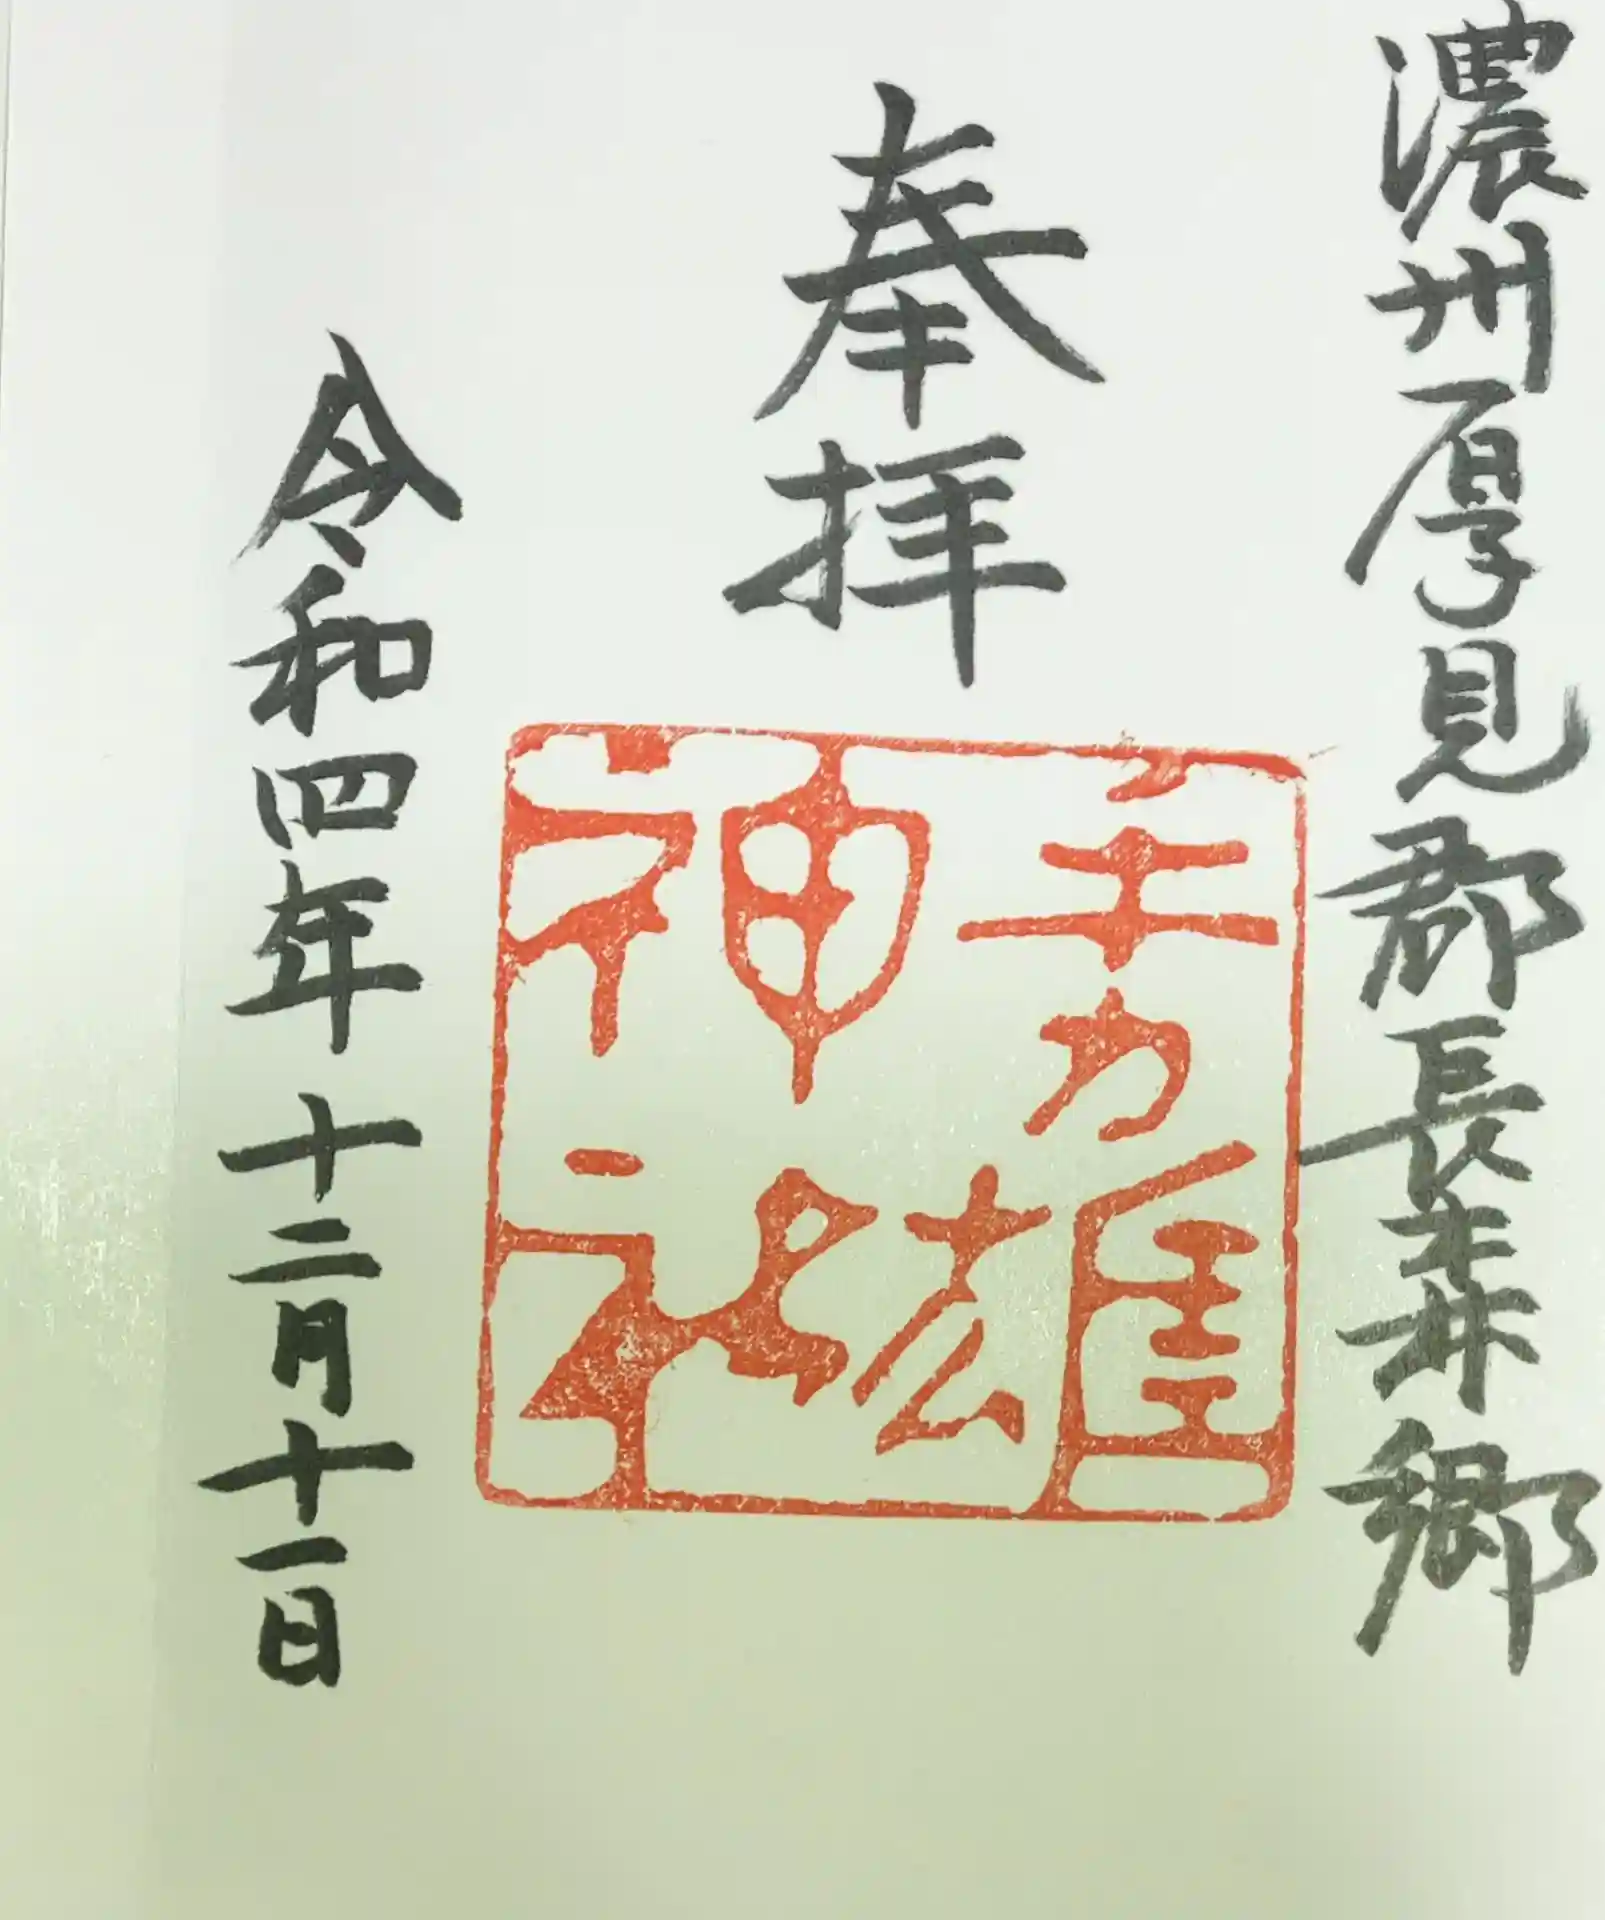 濃州厚見郡長森井郷
奉拝
手力雄
神社
令和四年十二月十一日